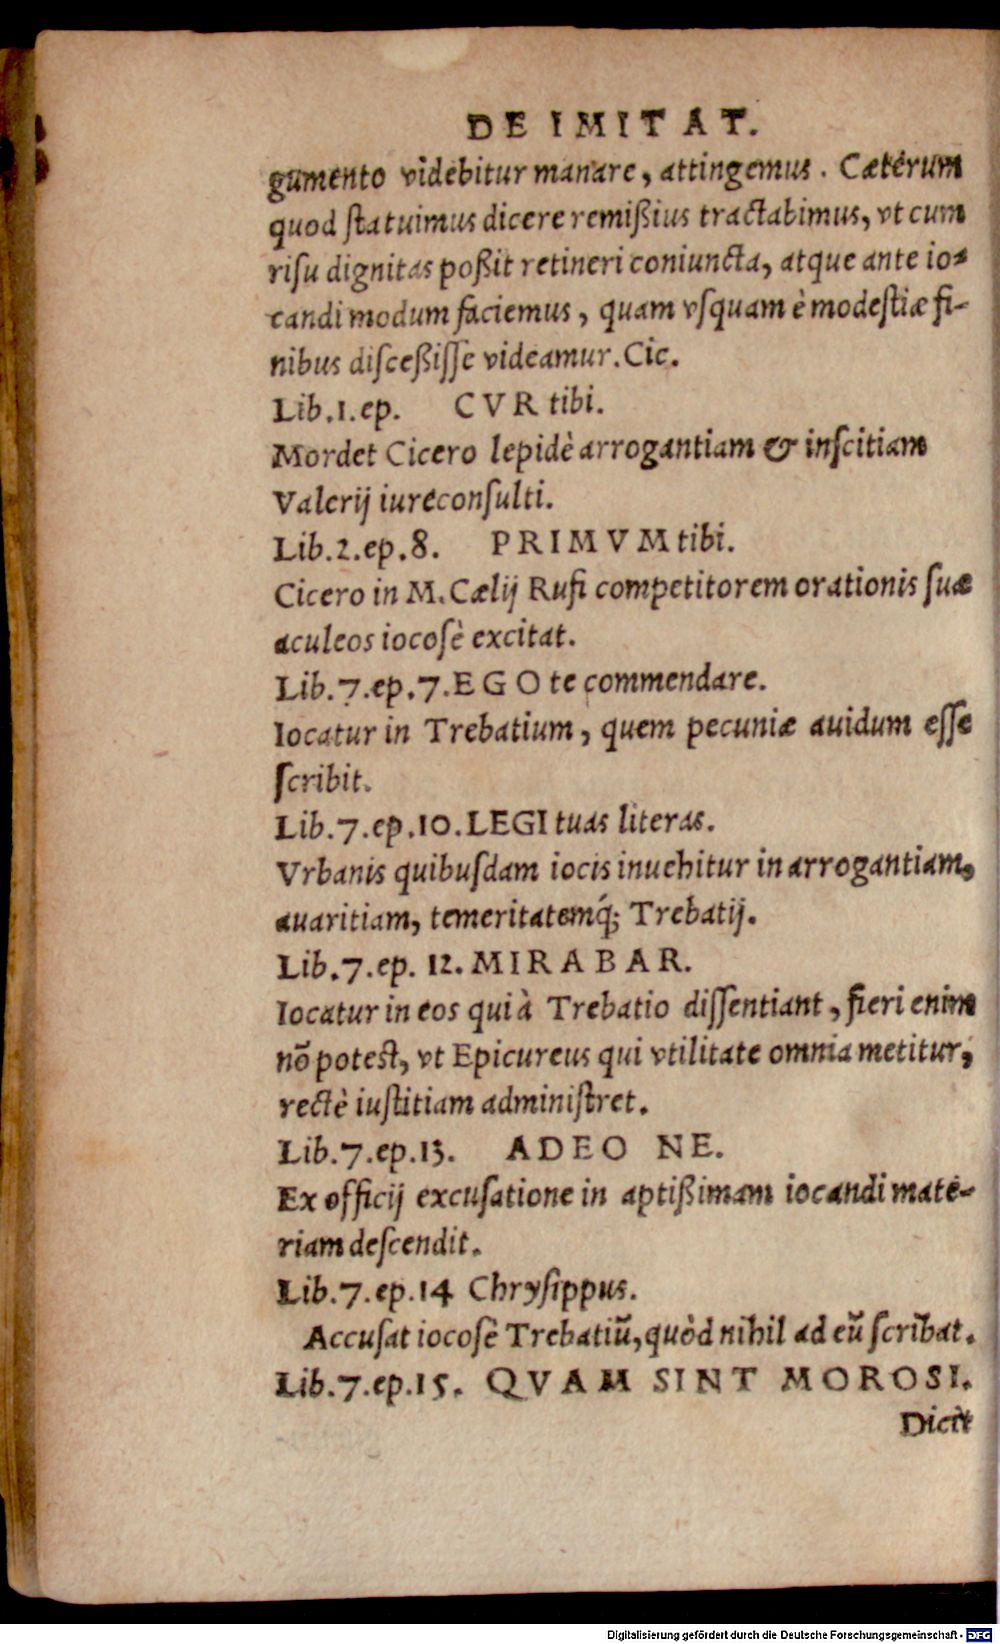 DE IMITAT.
gumento videbitur manare, attingemus. Cæterum
quod ſtatuimus dicere remißius tractabimus, vt cum
riſu dignitas poßit retineri coniuncta, atque ante io-
candi modum faciemus, quam vſquam è modeſtiæ fi-
nibus diſceßiſſe videamur. Cic.
Lib.1.ep. CVR tibi.
Mordet Cicero lepidè arrogantiam & inſcitiam
Valerij iureconſulti.
Lib.2.ep.8. PRIMVM tibi.
Cicero in M. Cælij Rufi competitorem orationis ſuæ
aculeos iocoſè excitat.
Lib.7.ep.7. EGO te commendare.
Iocatur in Trebatium, quem pecuniæ auidum eſſe
ſcribit.
Lib.7.ep.10. LEGI tuas literas.
Vrbanis quibuſdam iocis inuehitur in arrogantiam,
auaritiam, temeritatemq́; Trebatij.
Lib.7.ep. 12. MIRABAR.
Iocatur in eos qui à Trebatio diſſentiant, fieri enim
nō poteſt, vt Epicureus qui vtilitate omnia metitur,
rectè iuſtitiam adminiſtret.
Lib.7.ep.13. ADEO NE.
Ex officij excuſatione in aptißimam iocandi mate-
riam deſcendit.
Lib.7.ep.14 Chryſippus.
Accuſat iocoſè Trebatiū, quòd nihil ad eū ſcribat.
Lib.7.ep.15. QVAM SINT MOROSI.
Dicit
Digitalisierung gefördert durch die Deutsche Forschungsgemeinschaft - DFG